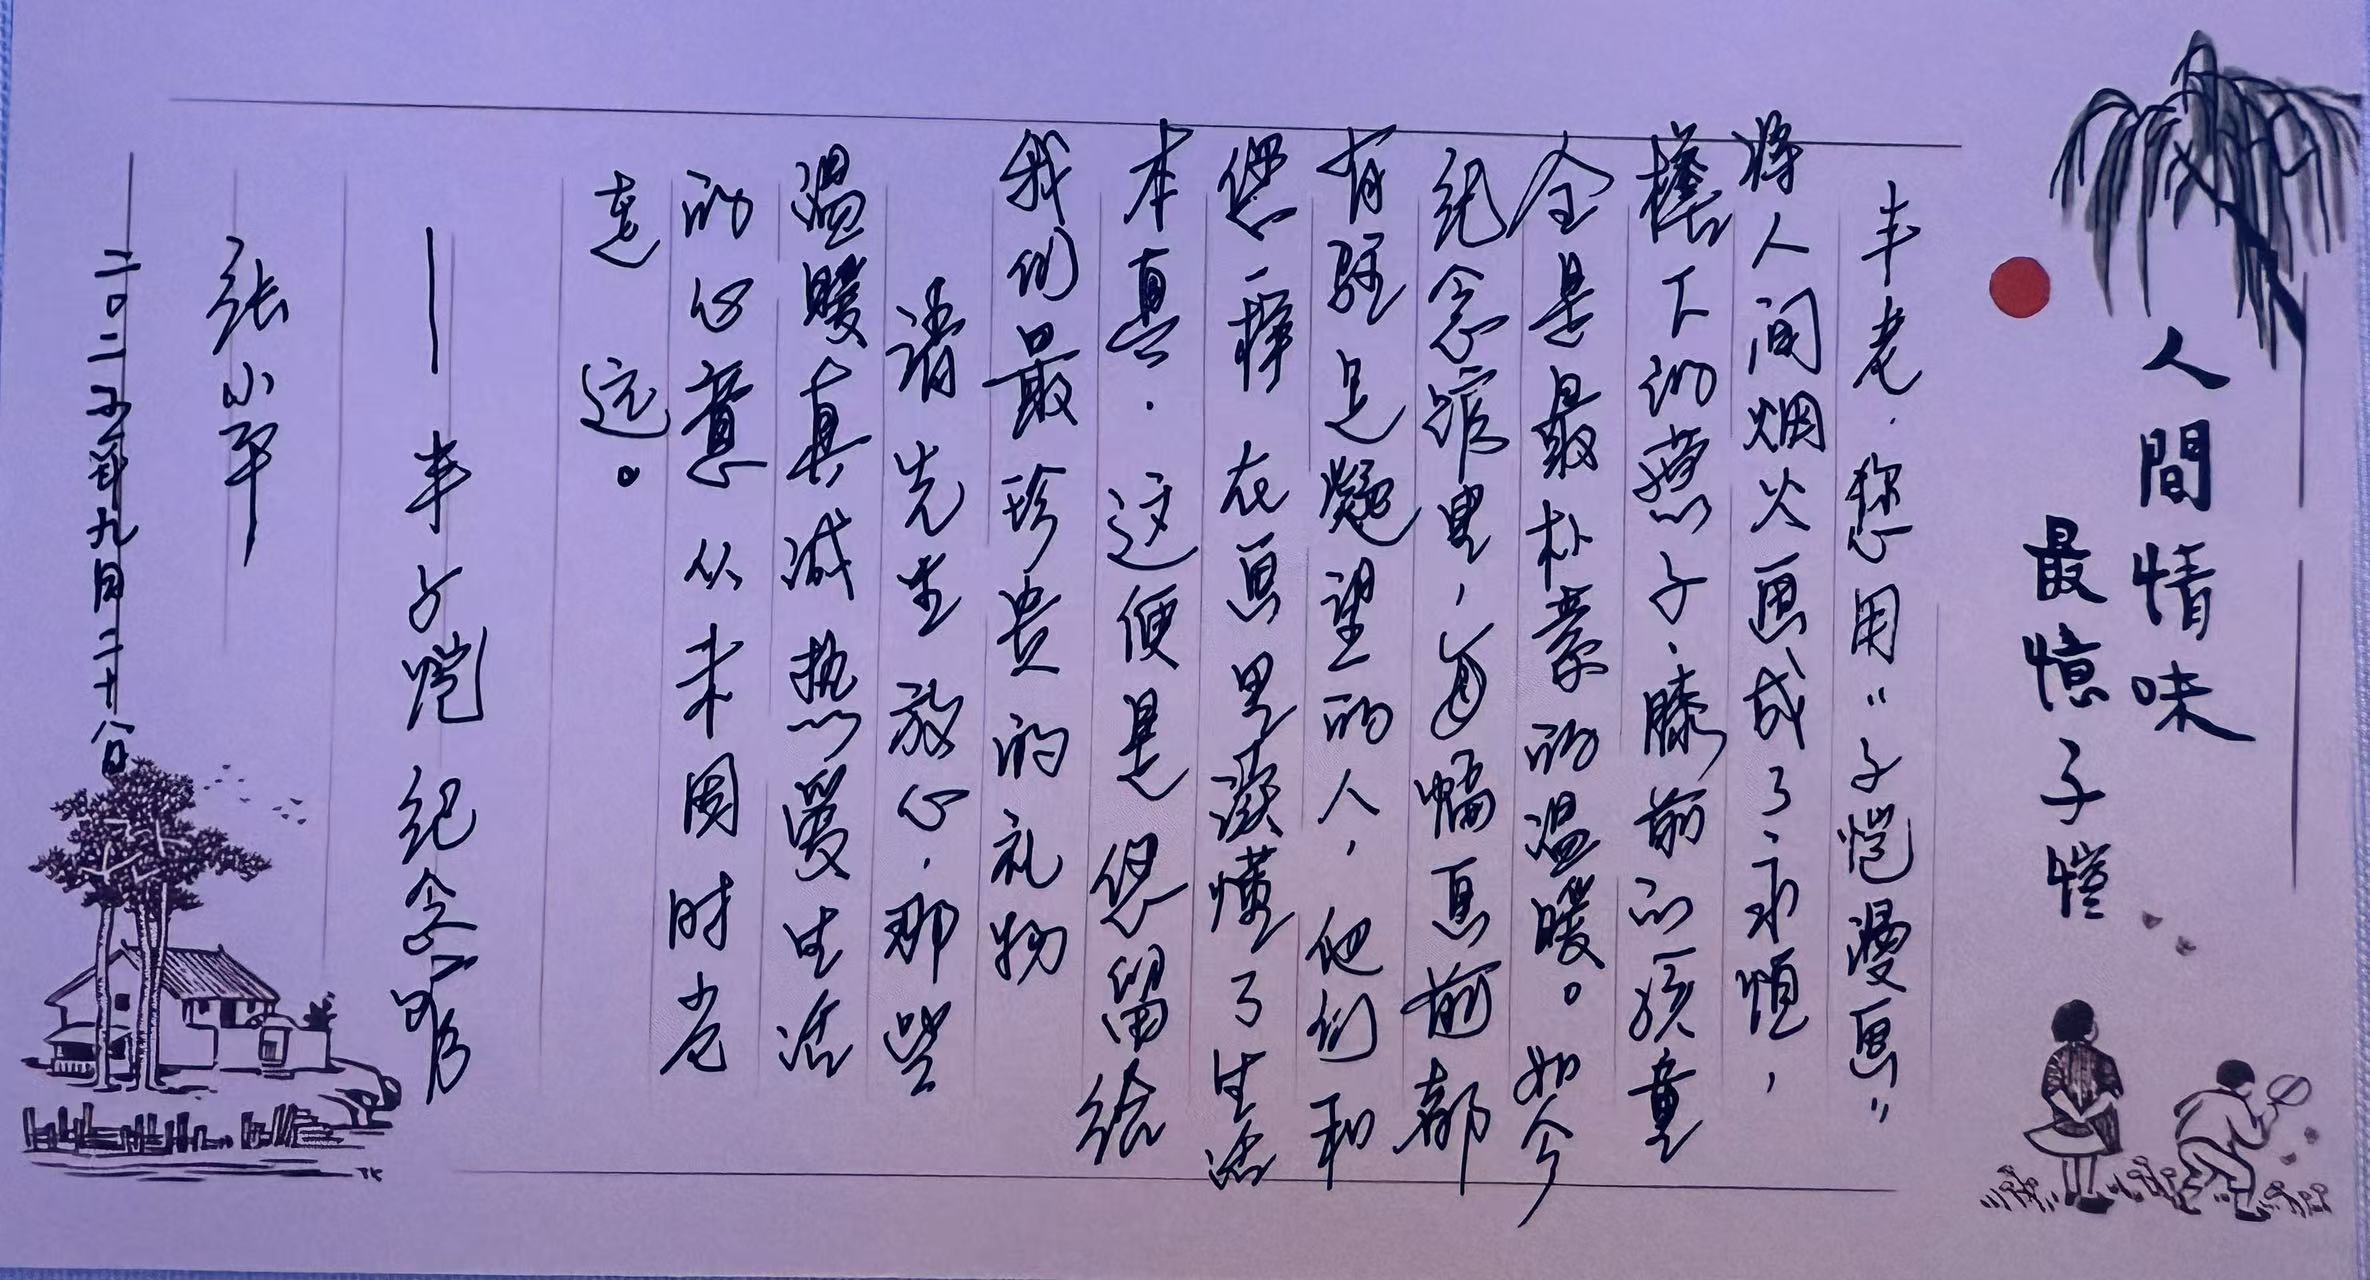 人間情味
最憶子愷
丰老.您用"子恺漫画"
将人间烟火画成了永恒,
楼下的燕子、膝前的孩童
全是最朴素的温暖。如今
纪念馆里,每幅画前都
有驻足凝望的人,他们和
您一样在画里读懂了生活
本真.这便是您留给
我们最珍贵的礼物
请先生放心.那些
温暖真诚热爱生活
的心意从未因时光
走远。
——丰子恺纪念馆
张小平
二〇二五年九月二十八日
TK